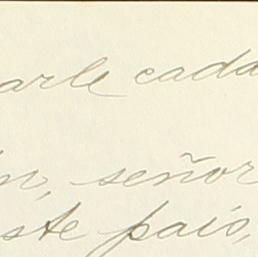 arle cada
n, señor
ste país,